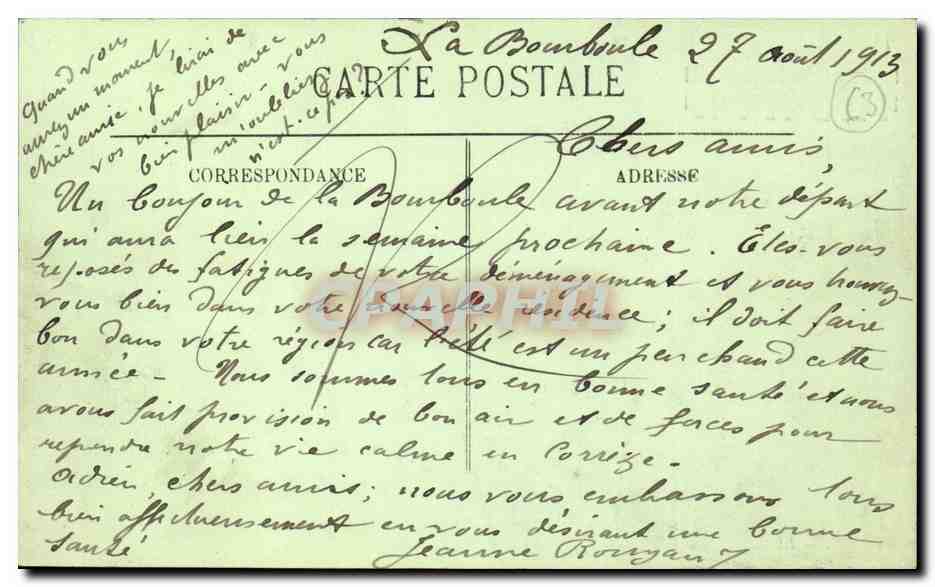 La Bourboule 27 août 1913
CARTE POSTALE
63
Quand vous
aurez un moment
chère amie, je lirai de
vos nouvelles avec
bien plaisir - vous
m'oubliez
n'est-ce pas?
CORRESPONDANCE
ADRESSE
Chers amis,
Un bonjour de la Bourboule avant notre départ
qui aura lieu la semaine prochaine. Êtes-vous
reposés des fatigues de votre déménagement et vous trouvez-
vous bien dans votre nouvelle résidence; il doit faire
bon dans votre région car l'été est un peu chaud cette
année - Nous sommes tous en bonne santé et nous
avons fait provision de bon air et de forces pour
reprendre notre vie calme en Corrèze.
Adieu, chers amis; nous vous embrassons tous
bien affectueusement en vous désirant une bonne
santé
Jeanne
CPAPHIL